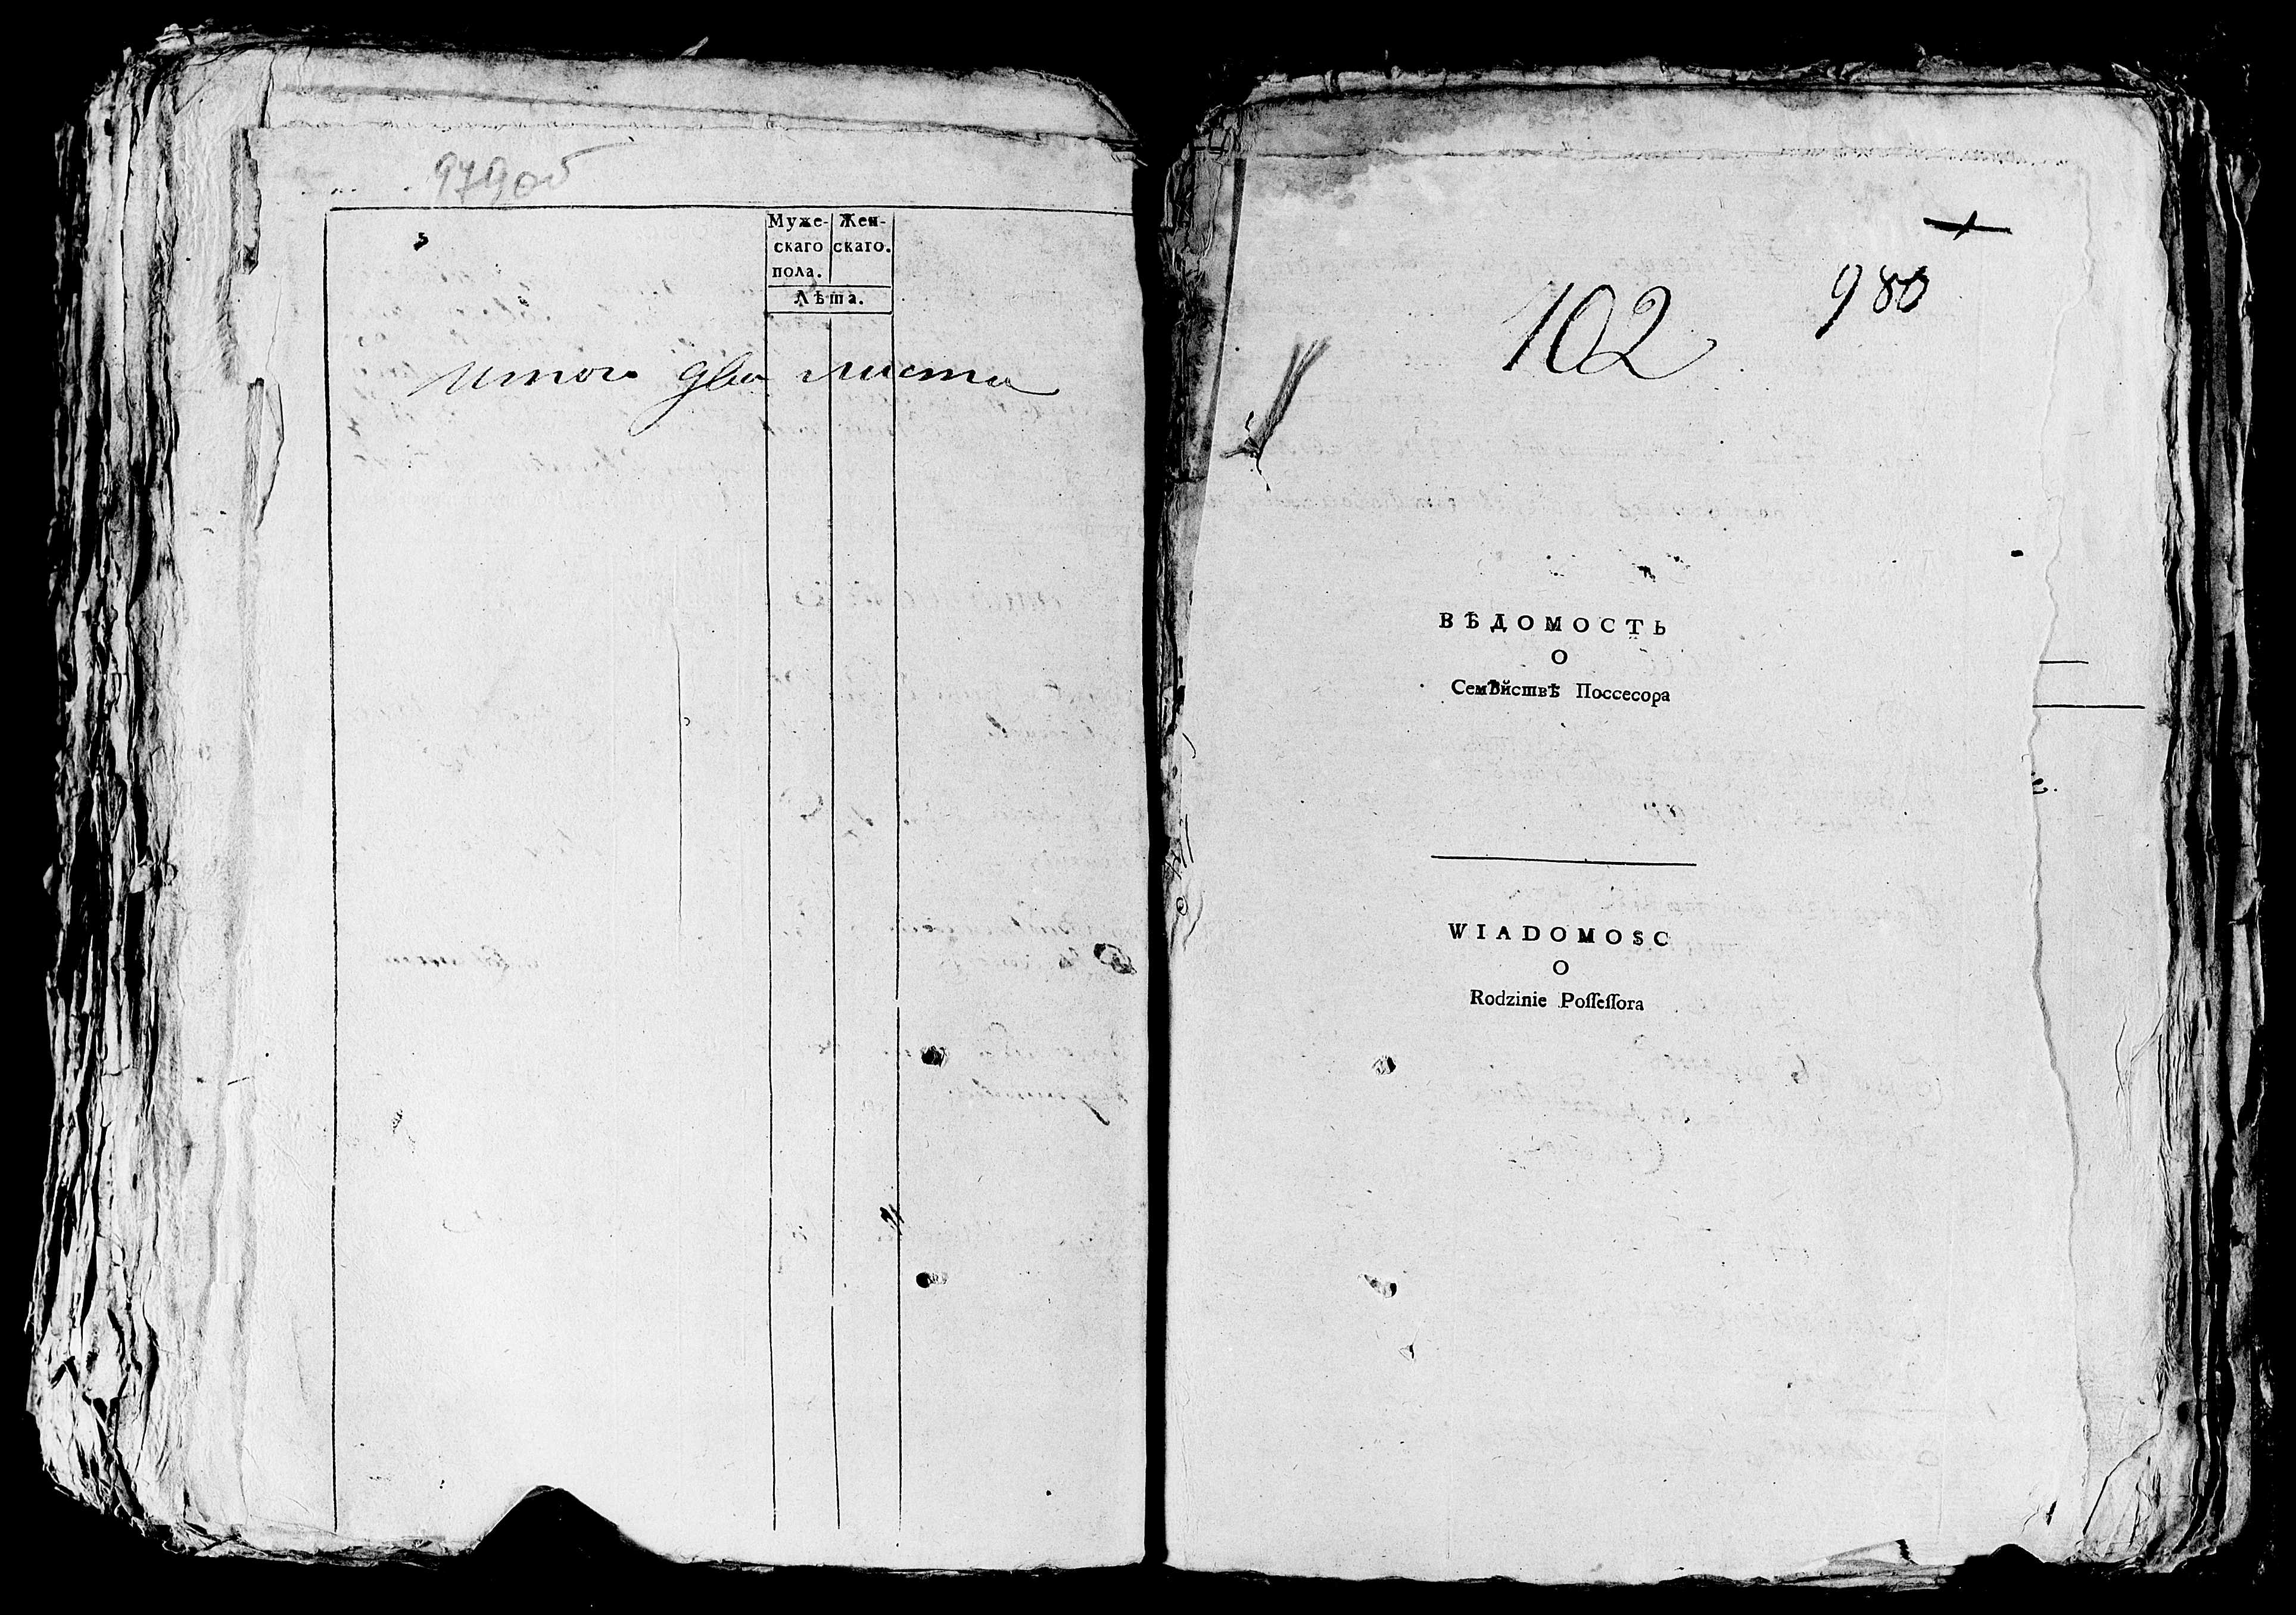 979об
Муже- Жен-
скаго скаго.
пола.
Лѣта.
итого два листа
102
980
ВѢДОМОСТЬ
О
Семѣйствѣ Поссесора
WIADOMOSC
O
Rodzinie Poſſeſſora